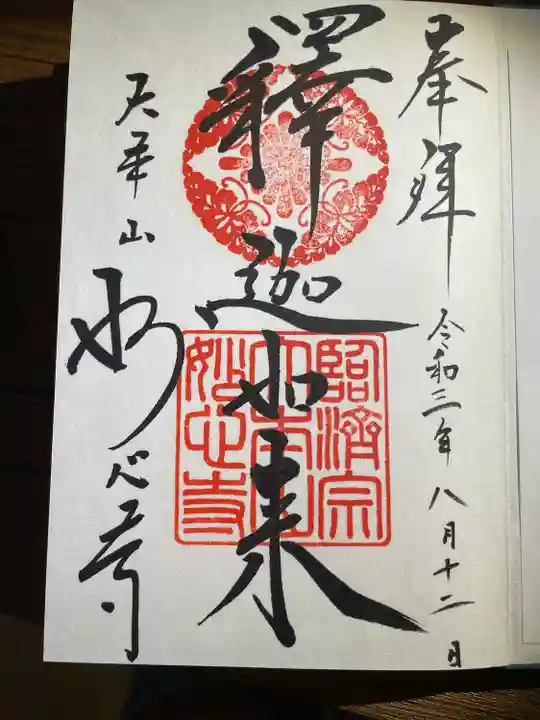 奉拝
令和三年八月十二日
釋迦如来
臨濟宗
大本山
妙心寺
山
妙心寺